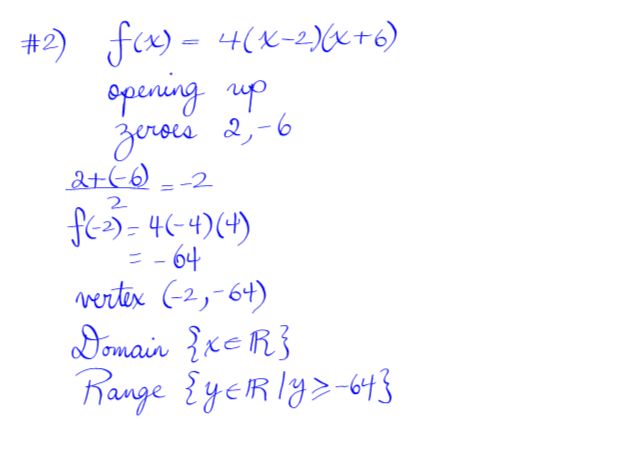 #2) f(x) = 4(x-2)(x+6)
opening up
zeroes 2,-6
2+(-6)
2
= -2
f(-2) = 4(-4)(4)
= -64
vertex (-2,-64)
Domain {x∈ℝ}
Range {y∈ℝ|y≥-64}